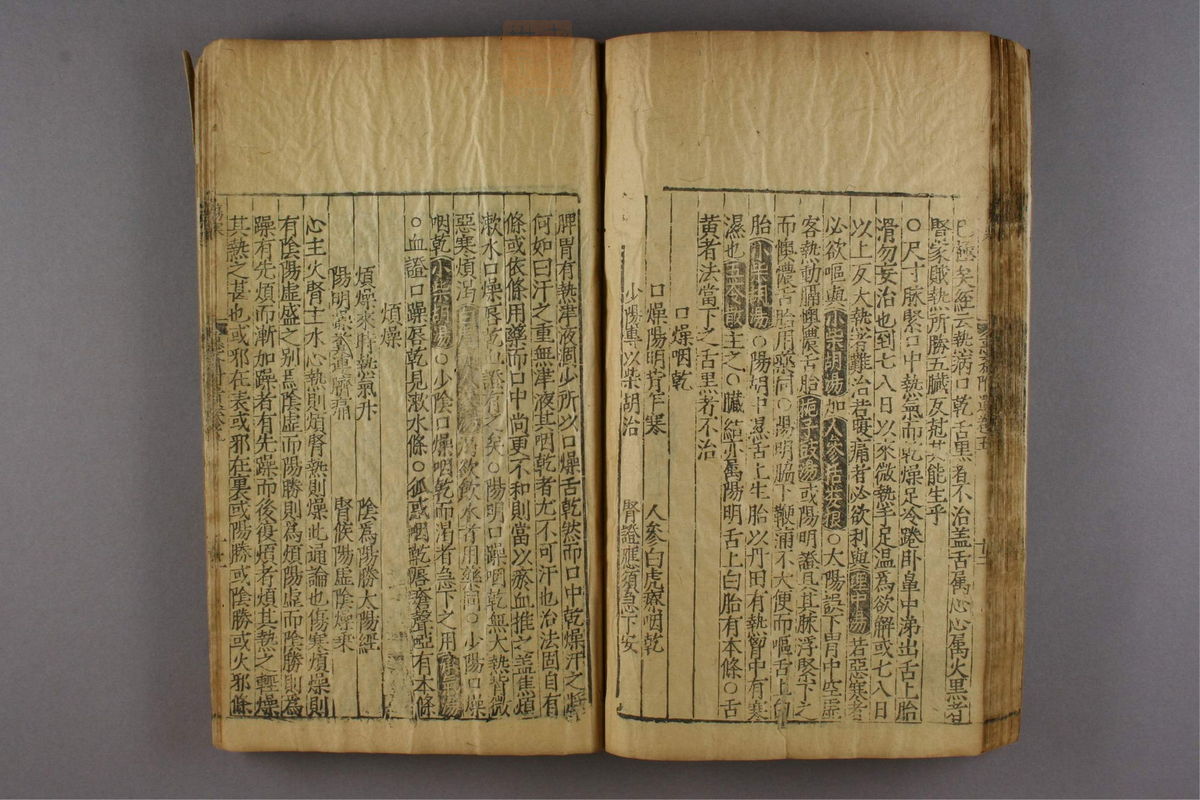 已極矣經云熱病口乾舌黑者不治蓋舌屬心心屬火黑者
腎家賊熱所勝五臟反甚其能生乎
○尺寸脉緊口中熱氣而乾燥足冷踡卧鼻中涕出舌上胎
滑勿妄治也到七八日以來微熱手足温爲欲解或七八日
以上反大熱者難治若腹痛者必欲利與理中湯若惡寒者
必欲嘔與小柴胡湯加人參括蔞根○大陽誤下胃中空虛
客熱動膈懊憹舌胎梔子豉湯或陽明證具其脉浮緊下之
而懊憹舌胎用藥同○陽明脇下鞕滿不大便而嘔舌上白
胎小柴胡湯○陽明中濕舌上生胎以丹田有熱胃中有寒
濕也五苓散主之○臟結亦屬陽明舌上白胎有本條○舌
黃者法當下之舌黑者不治
口燥咽乾
口燥陽明背乍寒 人參白虎療咽乾
少陽專以柴胡治 腎證應須急下安
脾胃有熱津液凋少所以口燥舌乾然而口中乾燥汗之將
何如曰汗之重無津液其咽乾者尤不可汗也治法固自有
條或依條用藥而口中尚更不和則當以瘀血推之蓋焦煩
漱水口燥唇乾血證有之矣○陽明口躁咽乾無大熱背微
惡寒煩渴白虎加人參湯渴欲飲水者用藥同○少陽口燥
咽乾小柴胡湯○少陰口燥咽乾而渴者急下之用承氣湯
○血證口躁唇乾見漱水條○狐惑咽乾唇瘡聲啞有本條
煩燥
煩燥來時熱氣升 陰爲陽勝大陽經
陽明躁 臍痛 腎候陽虛陰燥乘
心主火腎主水心熱則煩腎熱則燥此通論也傷寒煩燥則
有陰陽虛盛之别焉陰虛而陽勝則爲煩陽虛而陰勝則爲
躁有先煩而漸加躁者有先躁而後復煩者煩其熱之輕燥
其熱之甚也或邪在表或邪在裏或陽勝或陰勝或火邪條